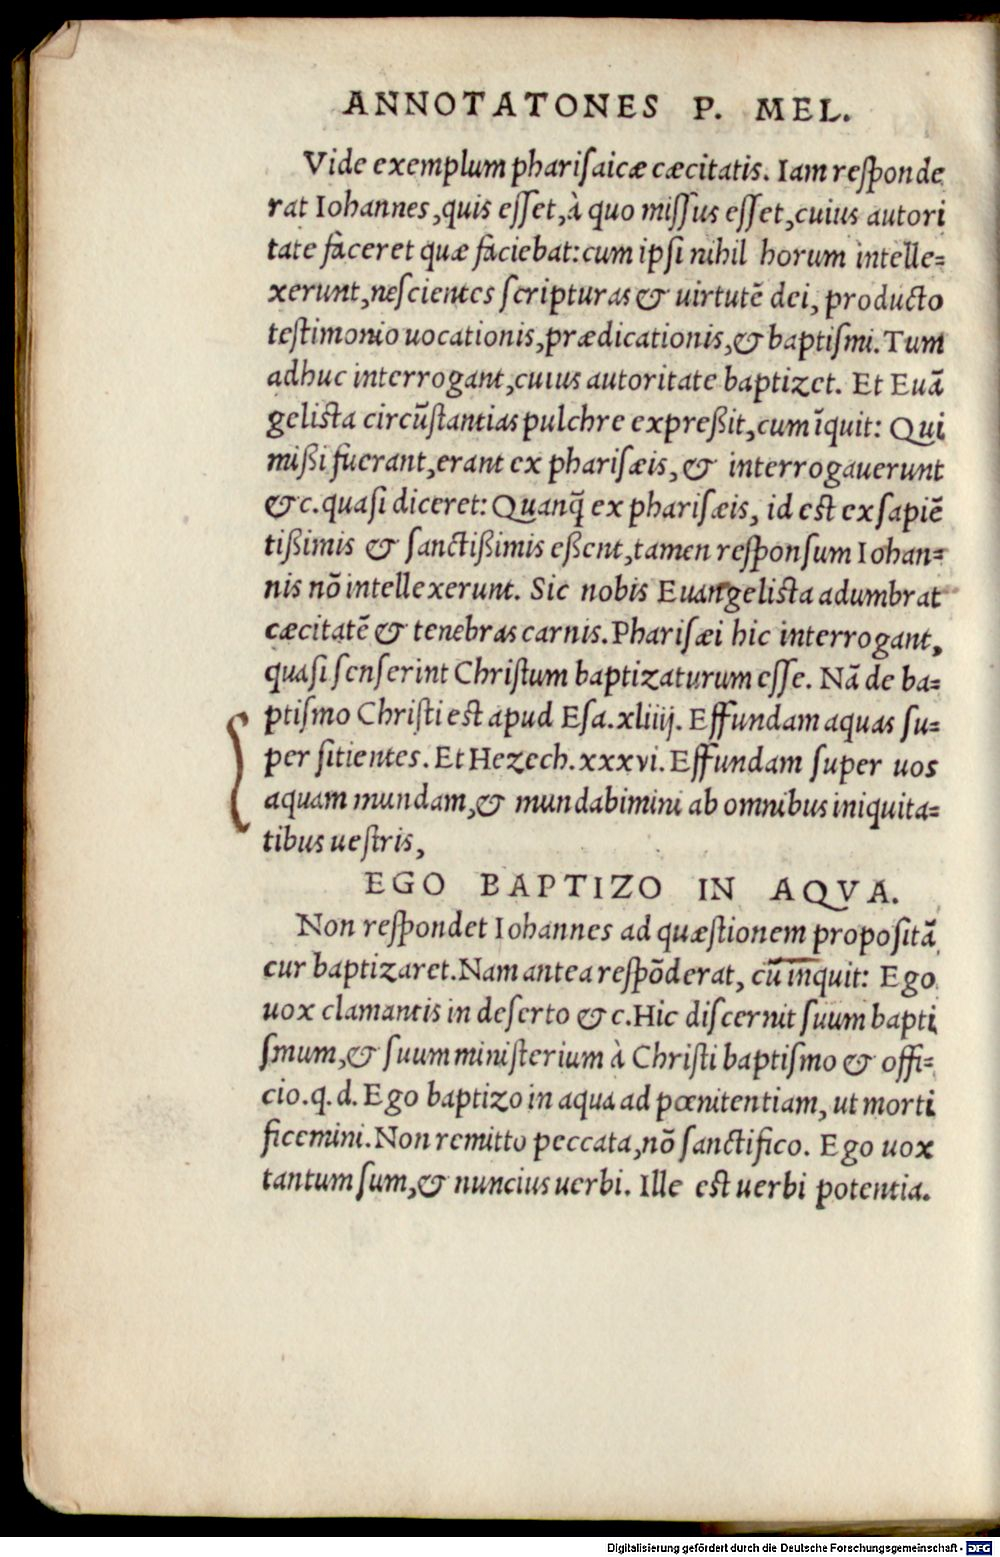 ANNOTATONES P. MEL.
Vide exemplum phariſaicæ cæcitatis. Iam reſponde
rat Iohannes, quis eſſet, à quo miſſus eſſet, cuius autori
tate faceret quæ faciebat: cum ipſi nihil horum intelle=
xerunt, neſcientes ſcripturas & uirtutē dei, producto
teſtimonio uocationis, prædicationis, & baptiſmi. Tum
adhuc interrogant, cuius autoritate baptizet. Et Euā
geliſta circūſtantias pulchre expreßit, cum īquit: Qui
mißi fuerant, erant ex phariſæis, & interrogauerunt
&c. quaſi diceret: Quanq̄ ex phariſæis, id eſt ex ſapiē
tißimis & ſanctißimis eßent, tamen reſponſum Iohan=
nis nō intellexerunt. Sic nobis Euangeliſta adumbrat
cæcitatē & tenebras carnis. Phariſæi hic interrogant,
quaſi ſenſerint Chriſtum baptizaturum eſſe. Nā de ba=
ptiſmo Chriſti eſt apud Eſa. xliiij. Effundam aquas ſu=
per ſitientes. Et Hezech. xxxvi. Effundam ſuper uos
aquam mundam, & mundabimini ab omnibus iniquita=
tibus ueſtris,
EGO BAPTIZO IN AQVA.
Non reſpondet Iohannes ad quæſtionem propoſitā
cur baptizaret. Nam antea reſpōderat, cū inquit: Ego
uox clamantis in deſerto &c. Hic diſcernit ſuum bapti
ſmum, & ſuum miniſterium à Chriſti baptiſmo & offi=
cio. q. d. Ego baptizo in aqua ad pœnitentiam, ut morti
ficemini. Non remitto peccata, nō ſanctifico. Ego uox
tantum ſum, & nuncius uerbi. Ille eſt uerbi potentia.
Digitalisierung gefördert durch die Deutsche Forschungsgemeinschaft - DFG